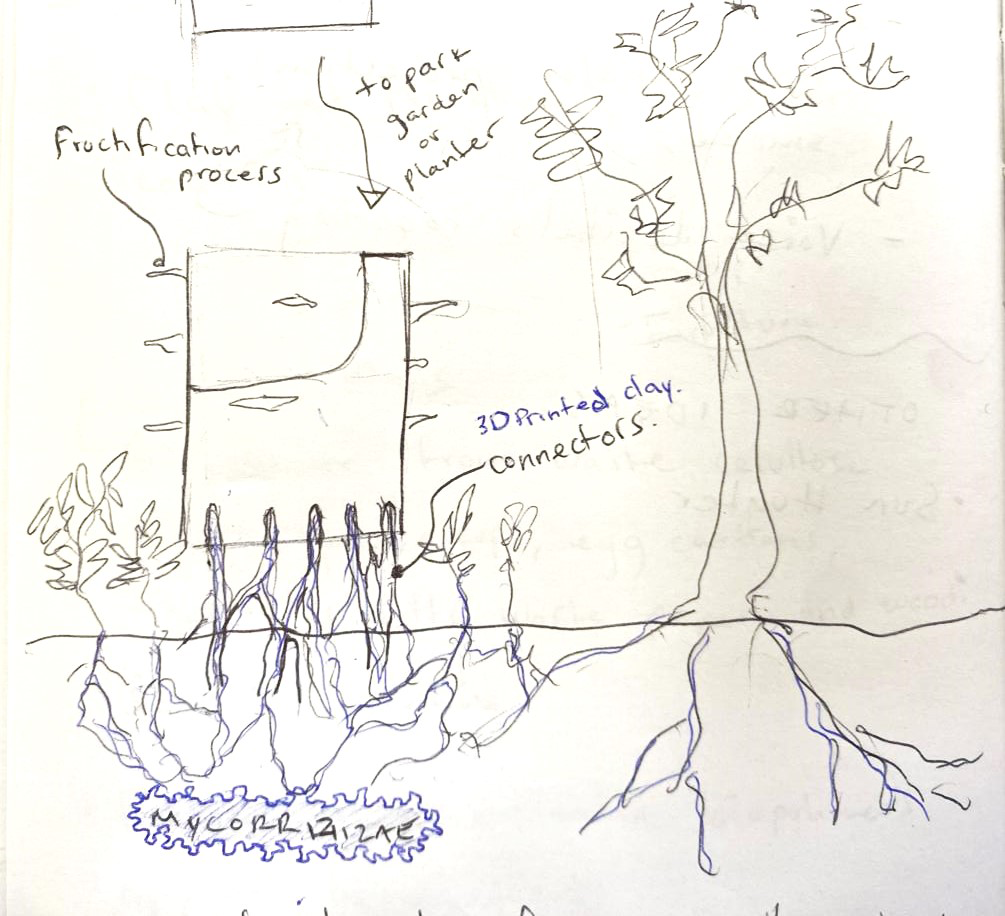 to park
garden
or
planter
Fructification
process
3D Printed clay.
connectors.
MYCORRIZIZAE